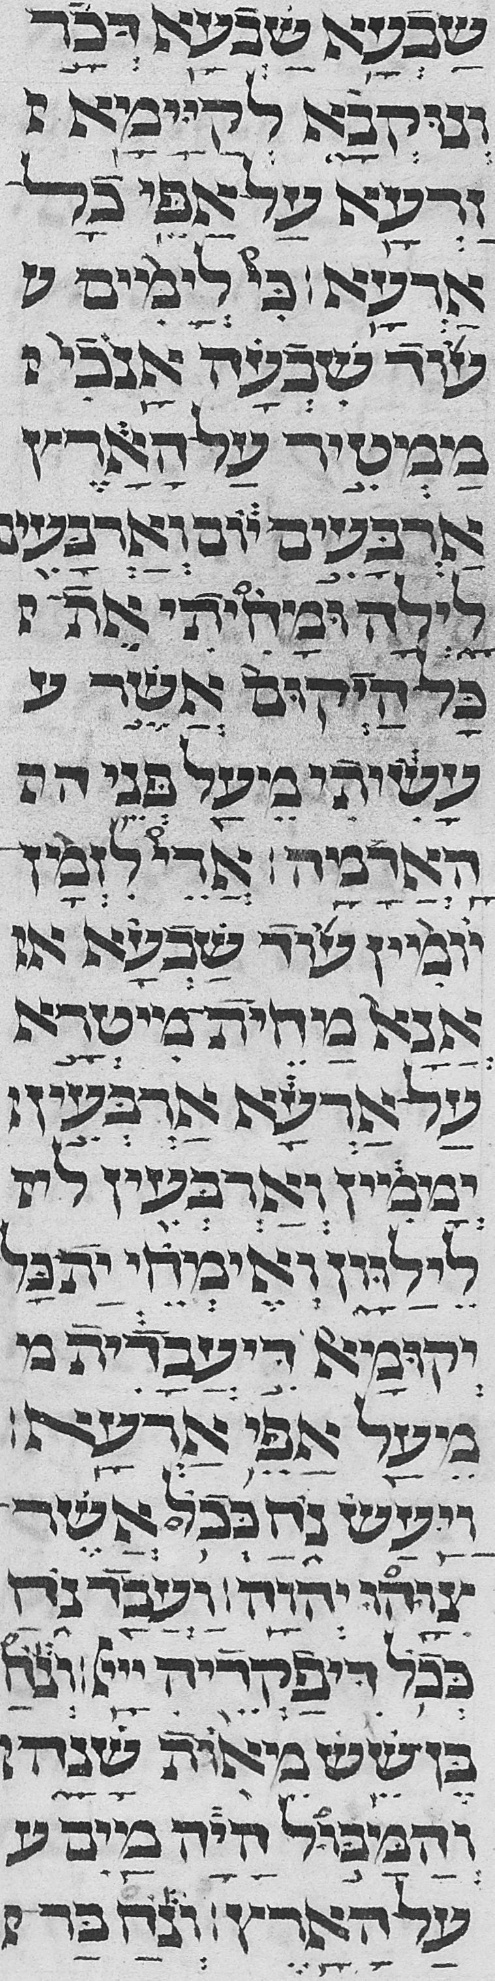 שבעא שבעא דכר
ונוקבא לקיימא
זרעא על אפי כל
ארעא׃ כי לימים ע
עוד שבעה אנכי
ממטיר על הארץ
ארבעים יום וארבעים
לילה ומחיתי את
כל היקום אשר ע
עשיתי מעל פני ה
האדמה׃ ארי לזמן
יומין עוד שבעא א
אנא מחית מיטרא
על ארעא ארבעין
יממין וארבעין ל
לילוון ואימחי ית כל
יקומא דיעבדית מ
מעל אפי ארעא׃
ויעש נח ככל אשר
צוהו יהוה׃ ועבד נח
ככל דיפקדיה ייי׃ ונח
בן שש מאות שנה ו
והמבול היה מים ע
על הארץ׃ ונח בר